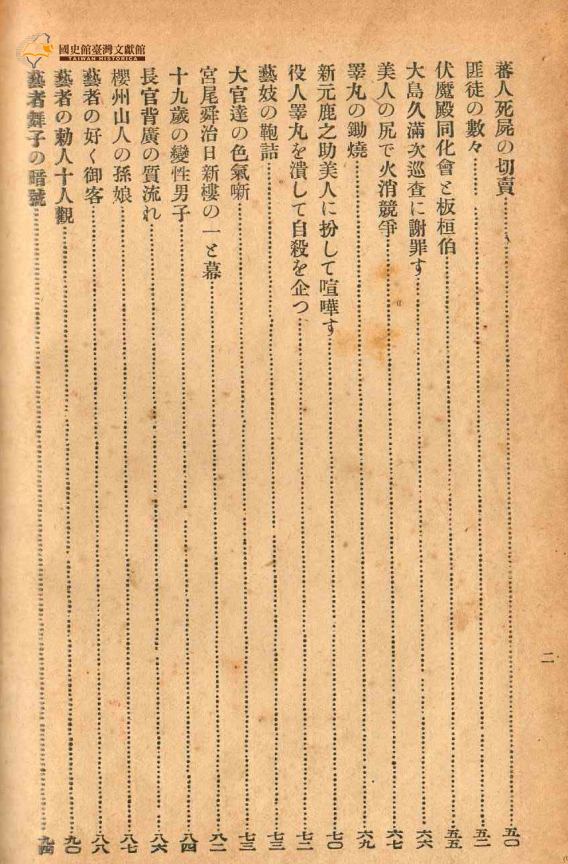 國史館臺灣文獻館
TAIWAN HISTORICA
蕃人死屍の切賣……五〇
匪徒の數々……五二
伏魔殿同化會と板垣伯……五五
大島久滿次巡査に謝罪す……六六
美人の尻で火消競爭……六七
睪丸の鋤燒……六九
新元鹿之助美人に扮して喧嘩す……七〇
役人睪丸を潰して自殺を企つ……七二
藝妓の鞄詰……七三
大官達の色氣噺……七三
宮尾舜治日新樓の一と幕……八二
十九歲の變性男子……八四
長官背廣の質流れ……八六
櫻州山人の孫娘……八七
藝者の好く御客……八八
藝者の勅人十人觀……九〇
藝者舞子の暗號……九四
二